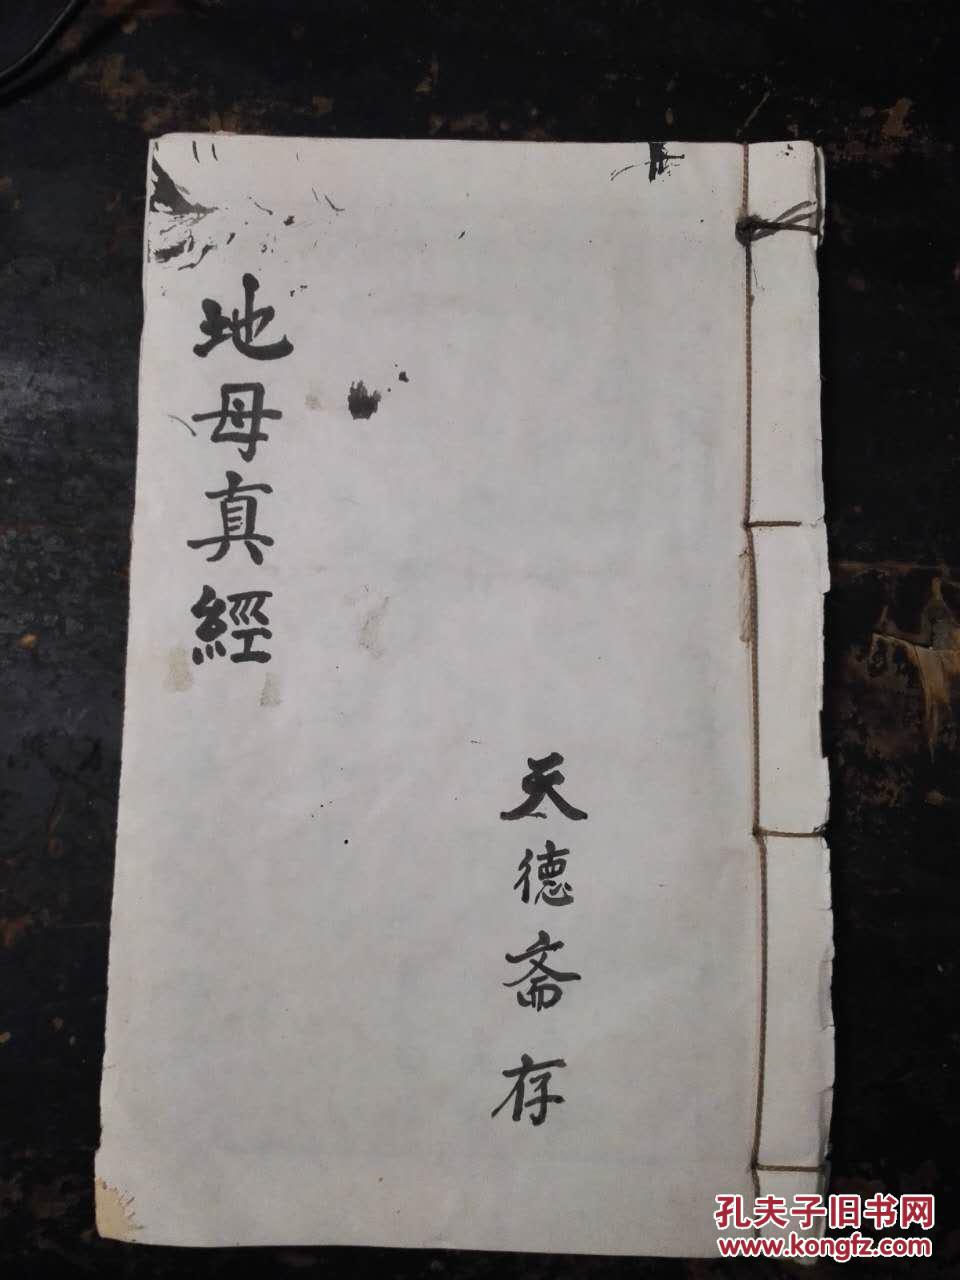 地母真經
天德斋存
孔夫子旧书网
www.kongfz.com